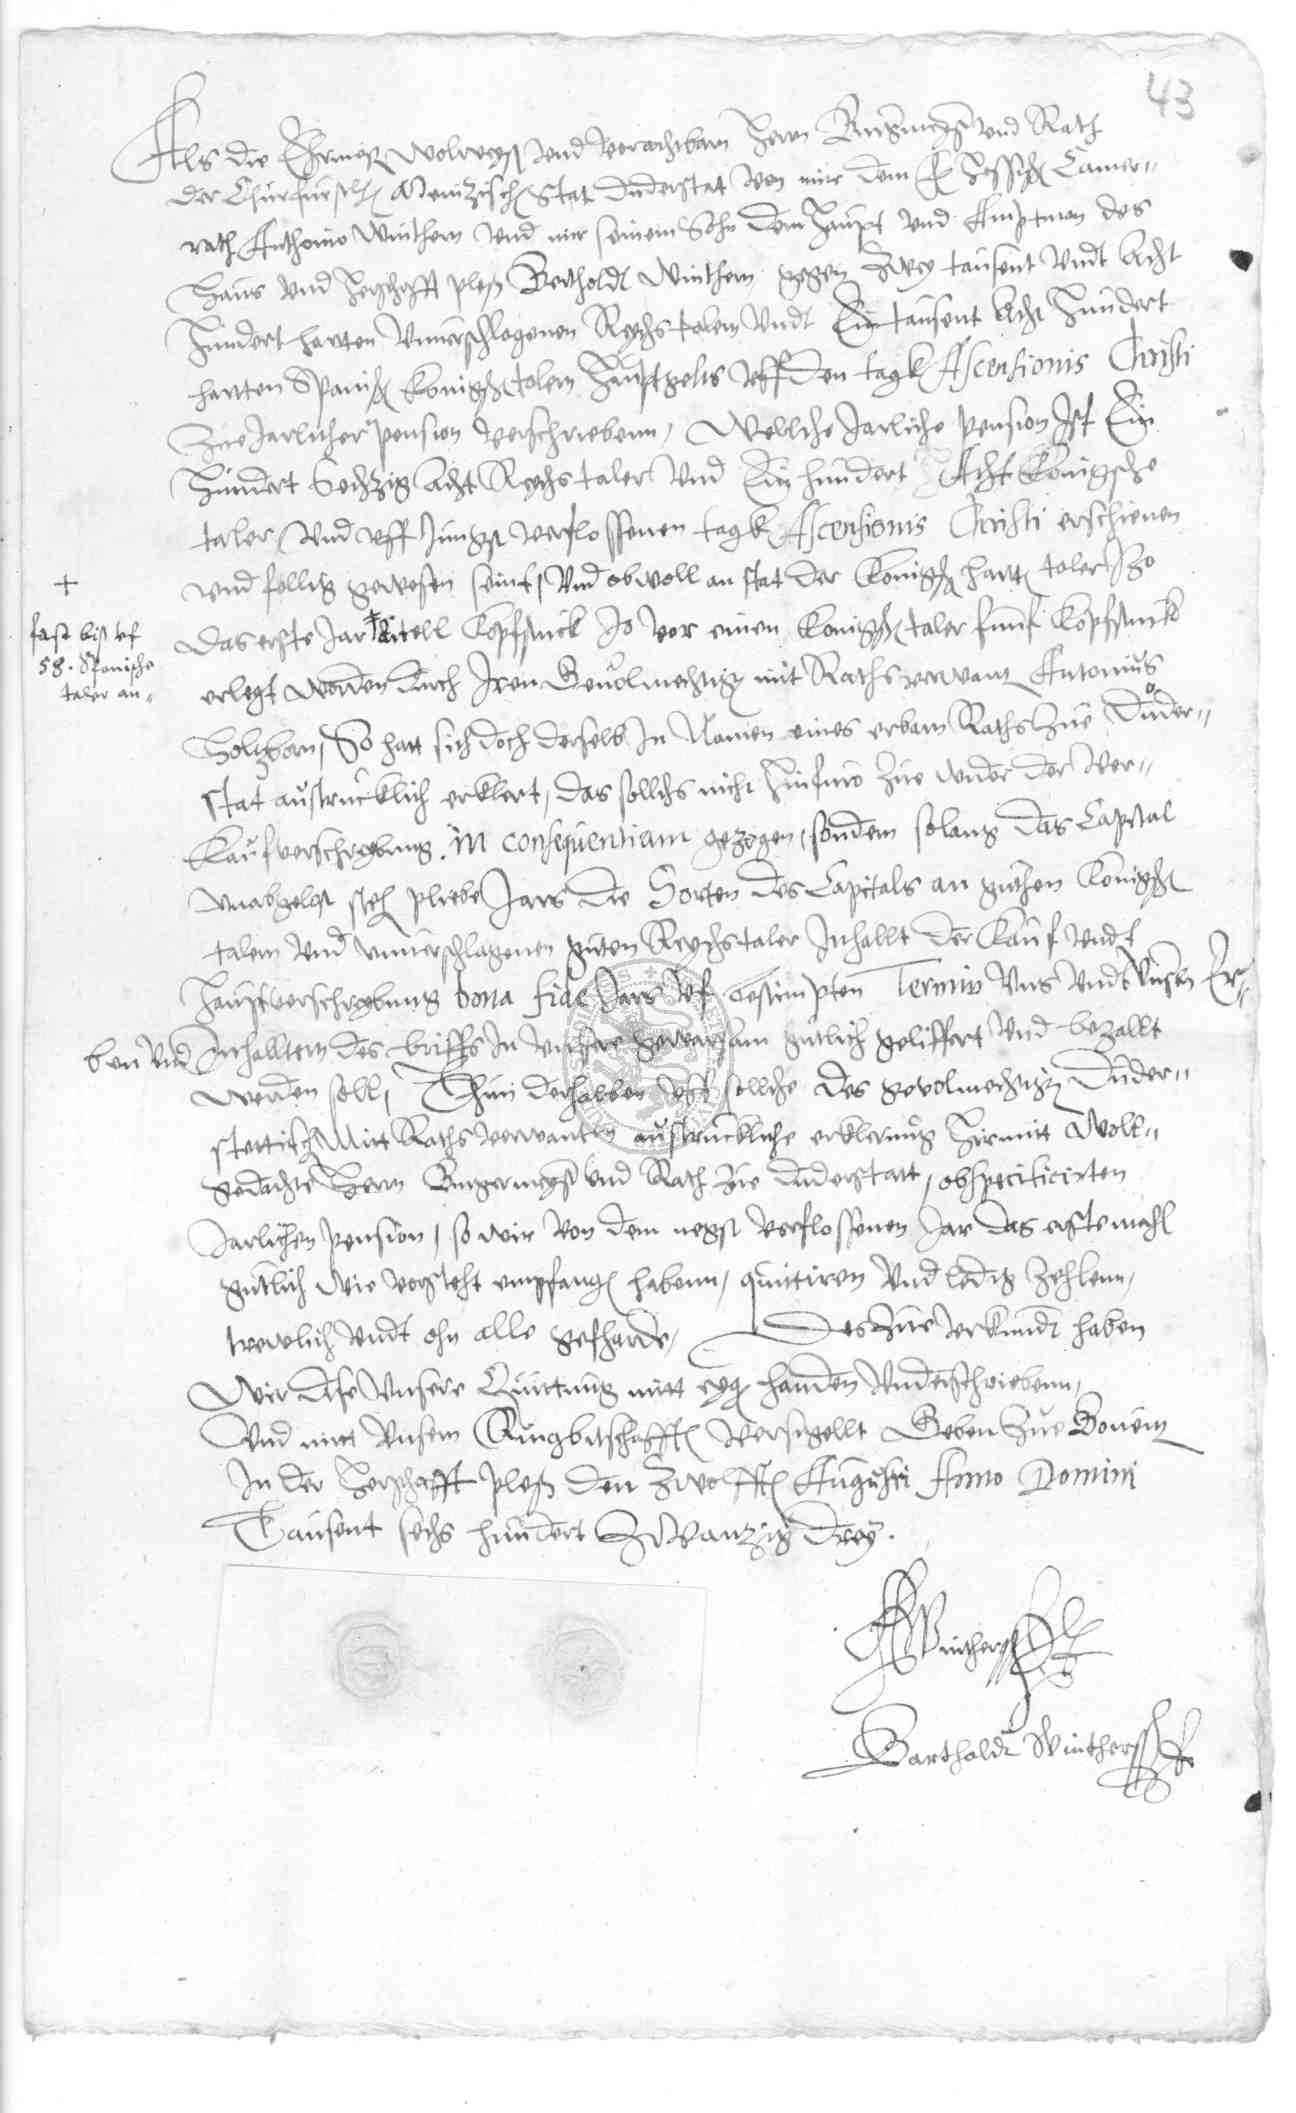 43
Als die Ehrnvest Wolweyß und vorachtbarn Hern Burgmeist und Rath
der Churfurstl Meintzisch Stat Duderstat von mir dem F Hessisch Camer-
rath Anthonio Winthern und mir seinem Sohn dem Haupt und Amptman des
Haus und Herschafft Pleß Bertholdt Winthern gegen Zwey tausent undt Acht
Hundert hartten unverschlagenen Reichs talern undt Ein tausent Acht Hundert
hartten Spanisch Konigsch talern Hauptgelts uff den tagk Ascensionis Christi
Zue Jarlicher pension verschriebenn, Wellche Jarliche pension Ist Ein
Hundert Sechzig Acht Reichs taler und Ein hundert Acht Konigsche
taler, und uff Jungst verflossenen tagk Ascensionis Christi erschienen
und fellig gewesen seint, und obwoll an stat der Konigsch hartt taler Jzo
+
fast biß uf
58. Spanische
taler an-
das erste Jar + Kopfstuck Jo vor einen Konigsch taler funf Kopfstucke
erlegt worden durch Iren Gevolmechtigen mit Raths verwant Antonius
Holtzborn, So hatt sich doch derselb In Namen eines erbarn Raths Zue Duder-
stat austrucklich erklert, das sollichs nicht hinfuro Zue wider der Ver-
Kaufverschreybung in consequentiam gezogen, sondern solang das Capital
unabgelost steh pliebe Jars die Sorten des Capitals an guthen Konigsch
talern und unverschlagenen guten Reichs taler Inhallt der Kauf undt
Hauptverschreybung bona fide Jars uf bestimpten Termin uns undt unsern Er-
ben und Inhalltern des briffs In unsere gewarsam gutlich geliffert und bezallt
werden soll, Thun derhalben uff solliche des gevolmechtigen Duder-
stettisch Mitt Raths verwanten austruckliche erklerung Hirmitt Woll-
gedachte Hern Burgermeyst und Rath Zue Duderstatt, obspecificirten
Jarlichen pension, so wir von dem negst verflossenen Jar das erstemahl
gutlich wie vorsteht empfang habenn, quittiren und ledig Zehlenn,
trewlich undt ohn alle gefharde, Des Zue verkundt haben
Wir dise unsere Quittung mitt eyg handen underschriebenn,
Und mitt unsern Ringbitschafft versigellt Geben Zue Bovent
In der Herschafft Pleß den Zwolfft Augusti Anno Domini
Tausent sechs hundert Zwanzig Drey.
A Winther
Bartholdt Winther